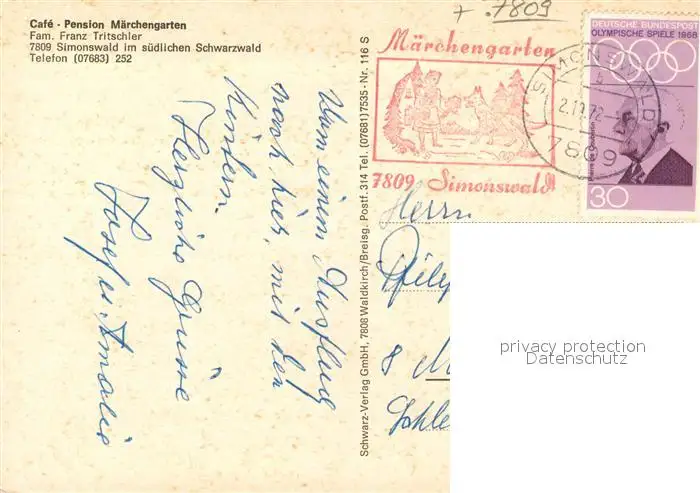 + .7809
Café - Pension Märchengarten
Fam. Franz Tritschler
7809 Simonswald im südlichen Schwarzwald
Telefon (07683) 252
Vom einem Ausflug
nach hier, mit den
Kindern.
Herzliche Grüsse
Josef u. Amalie
Schwarz-Verlag GmbH, 7808 Waldkirch/Breisg. Postf. 314 Tel. (07681) 7535 - Nr. 116 S
Märchengarten
7809 Simonswald
SIMONSWALD
b
7809
DEUTSCHE BUNDESPOST
OLYMPISCHE SPIELE 1968
Pierre de Coubertin
30
Herrn
8 M
privacy protection
Datenschutz